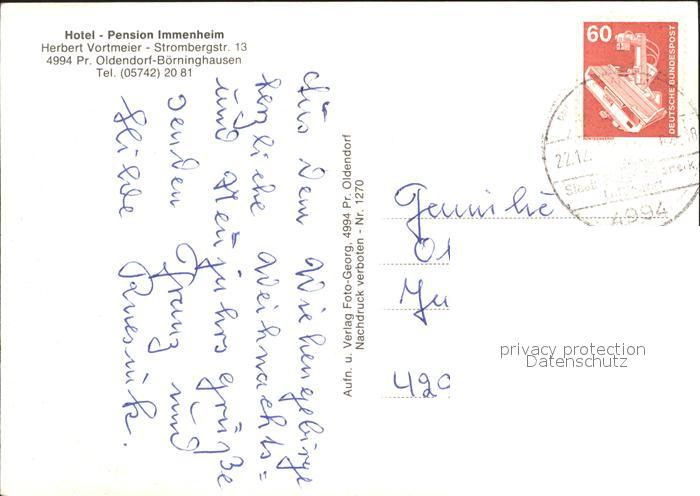 Hotel - Pension Immenheim
Herbert Vortmeier - Strombergstr. 13
4994 Pr. Oldendorf-Börninghausen
Tel. (05742) 20 81
Aus dem Wiehengebirge
herzliche Weihnachts=
und Neujahrsgrüße
senden Franz und
Hilde
Aufn. u. Verlag Foto-Georg, 4994 Pr. Oldendorf
Nachdruck verboten - Nr. 1270
60
DEUTSCHE BUNDESPOST
22.12
4994
Familie
privacy protection
Datenschutz